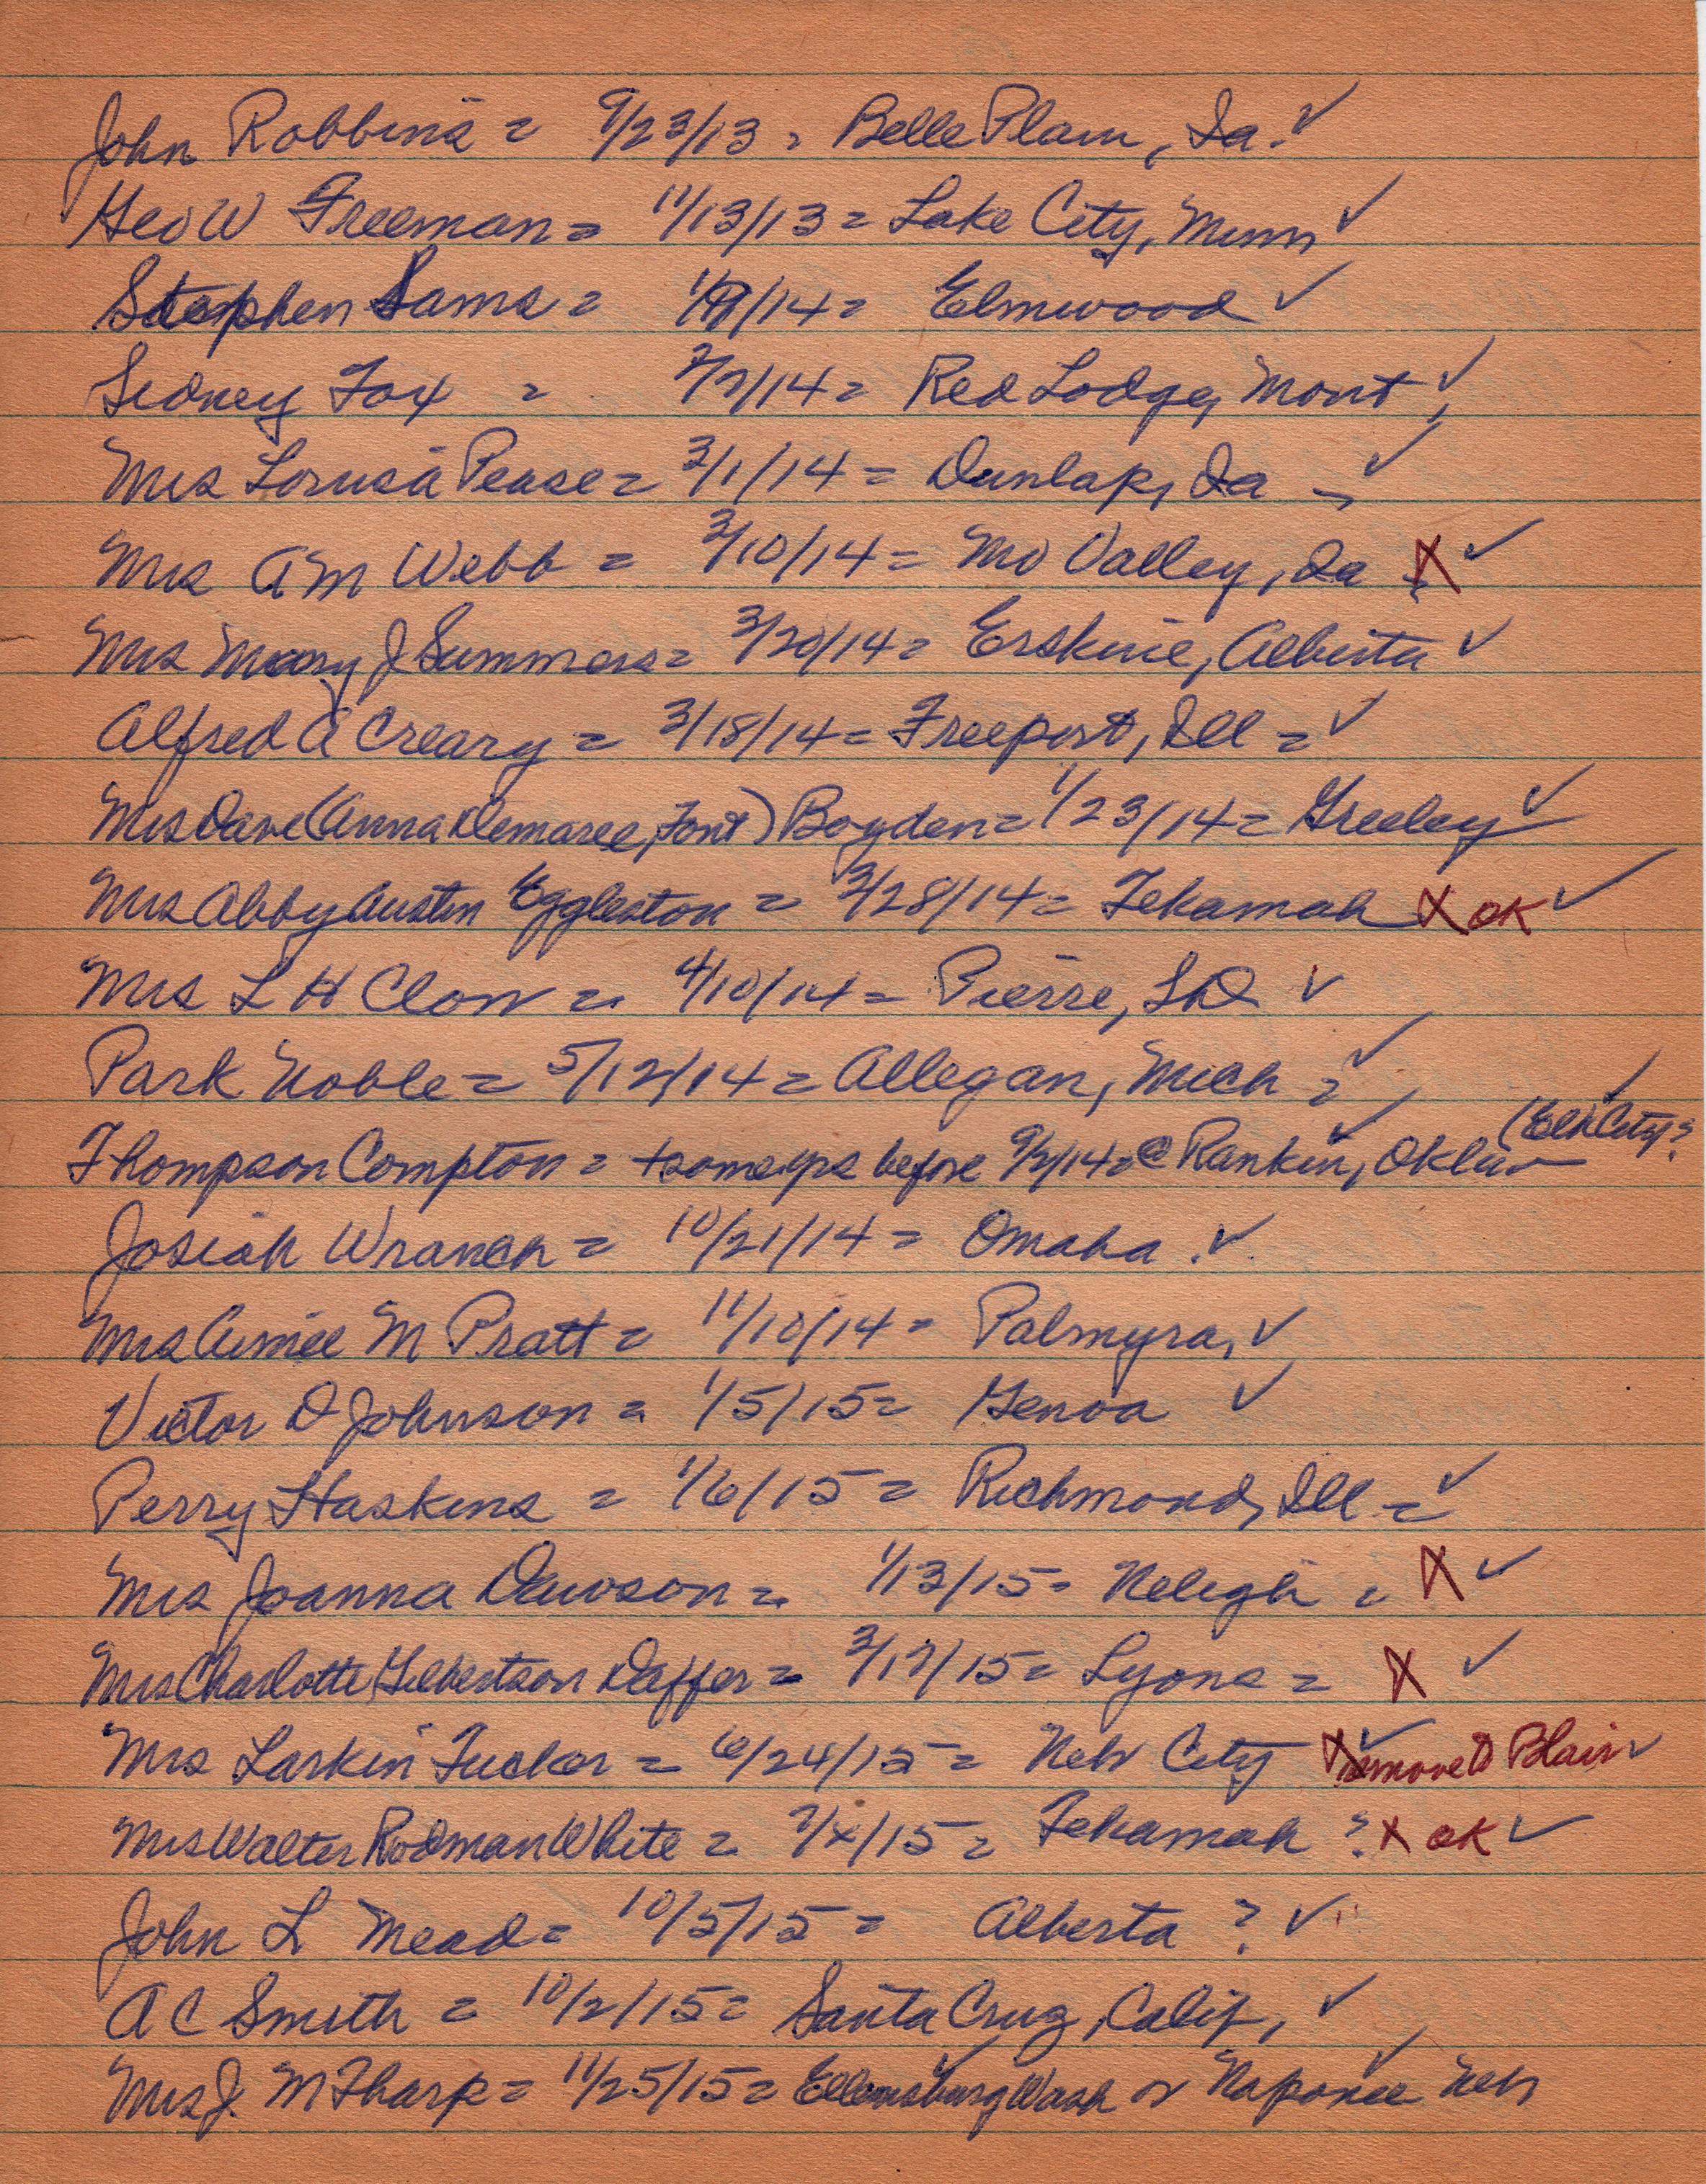 John Robbins = 9/23/13 = Belle Plain, Ia. ✓
Geo W Freeman = 11/13/13 = Lake City, Minn ✓
Stephen Sams = /14 = Elmwood ✓
Sidney Fox = 2/7/14 = Red Lodge, Mont ✓
Mrs Pease = 3/1/14 = Dunlap, Ia ✓
Mrs A M Webb = 3/10/14 = Mo Valley, Ia X ✓
Mrs Mary J Summers = 3/20/14 = Erskine, Alberta ✓
Alfred A Creary = 3/18/14 = Freeport, Ill = ✓
Mrs Dave (Anna Demaree, Font) Boyden = 1/23/14 = Greeley ✓
Mrs Abby Austin Eggleston = 3/28/14 = Tekamah X OK ✓
Mrs L H Clow = 4/10/14 = Pierre, SD ✓
Park Noble = 5/12/14 = Allegan, Mich = ✓
(Elk City? ✓
Thompson Compton = + some yrs before 9/2/14 = @ Rankin, Okla ✓
Josiah Wranch = 10/21/14 = Omaha ✓
Mrs Aimee M Pratt = 11/10/14 = Palmyra, ✓
Victor D Johnson = 1/5/15 = Genoa ✓
Perry Haskins = 1/6/15 = Richmond, Ill = ✓
Mrs Joanna Dawson = 1/13/15 = Neligh = X ✓
Mrs Charlotte Gilbertson Daffer = 3/17/15 = Lyons = X ✓
Mrs Larkin Tucker = 6/24/15 = Neb City X ✓ move to Blair ✓
Mrs Walter Rodman White = 7/x/15 = Tekamah ? X OK ✓
John L Mead = 10/5/15 = Alberta ? ✓
A C Smith = 10/2/15 = Santa Cruz, Calif, ✓
Mrs J. M Tharp = 11/25/15 = Ellensburg Wash ✓ or Naponee ✓ Neb